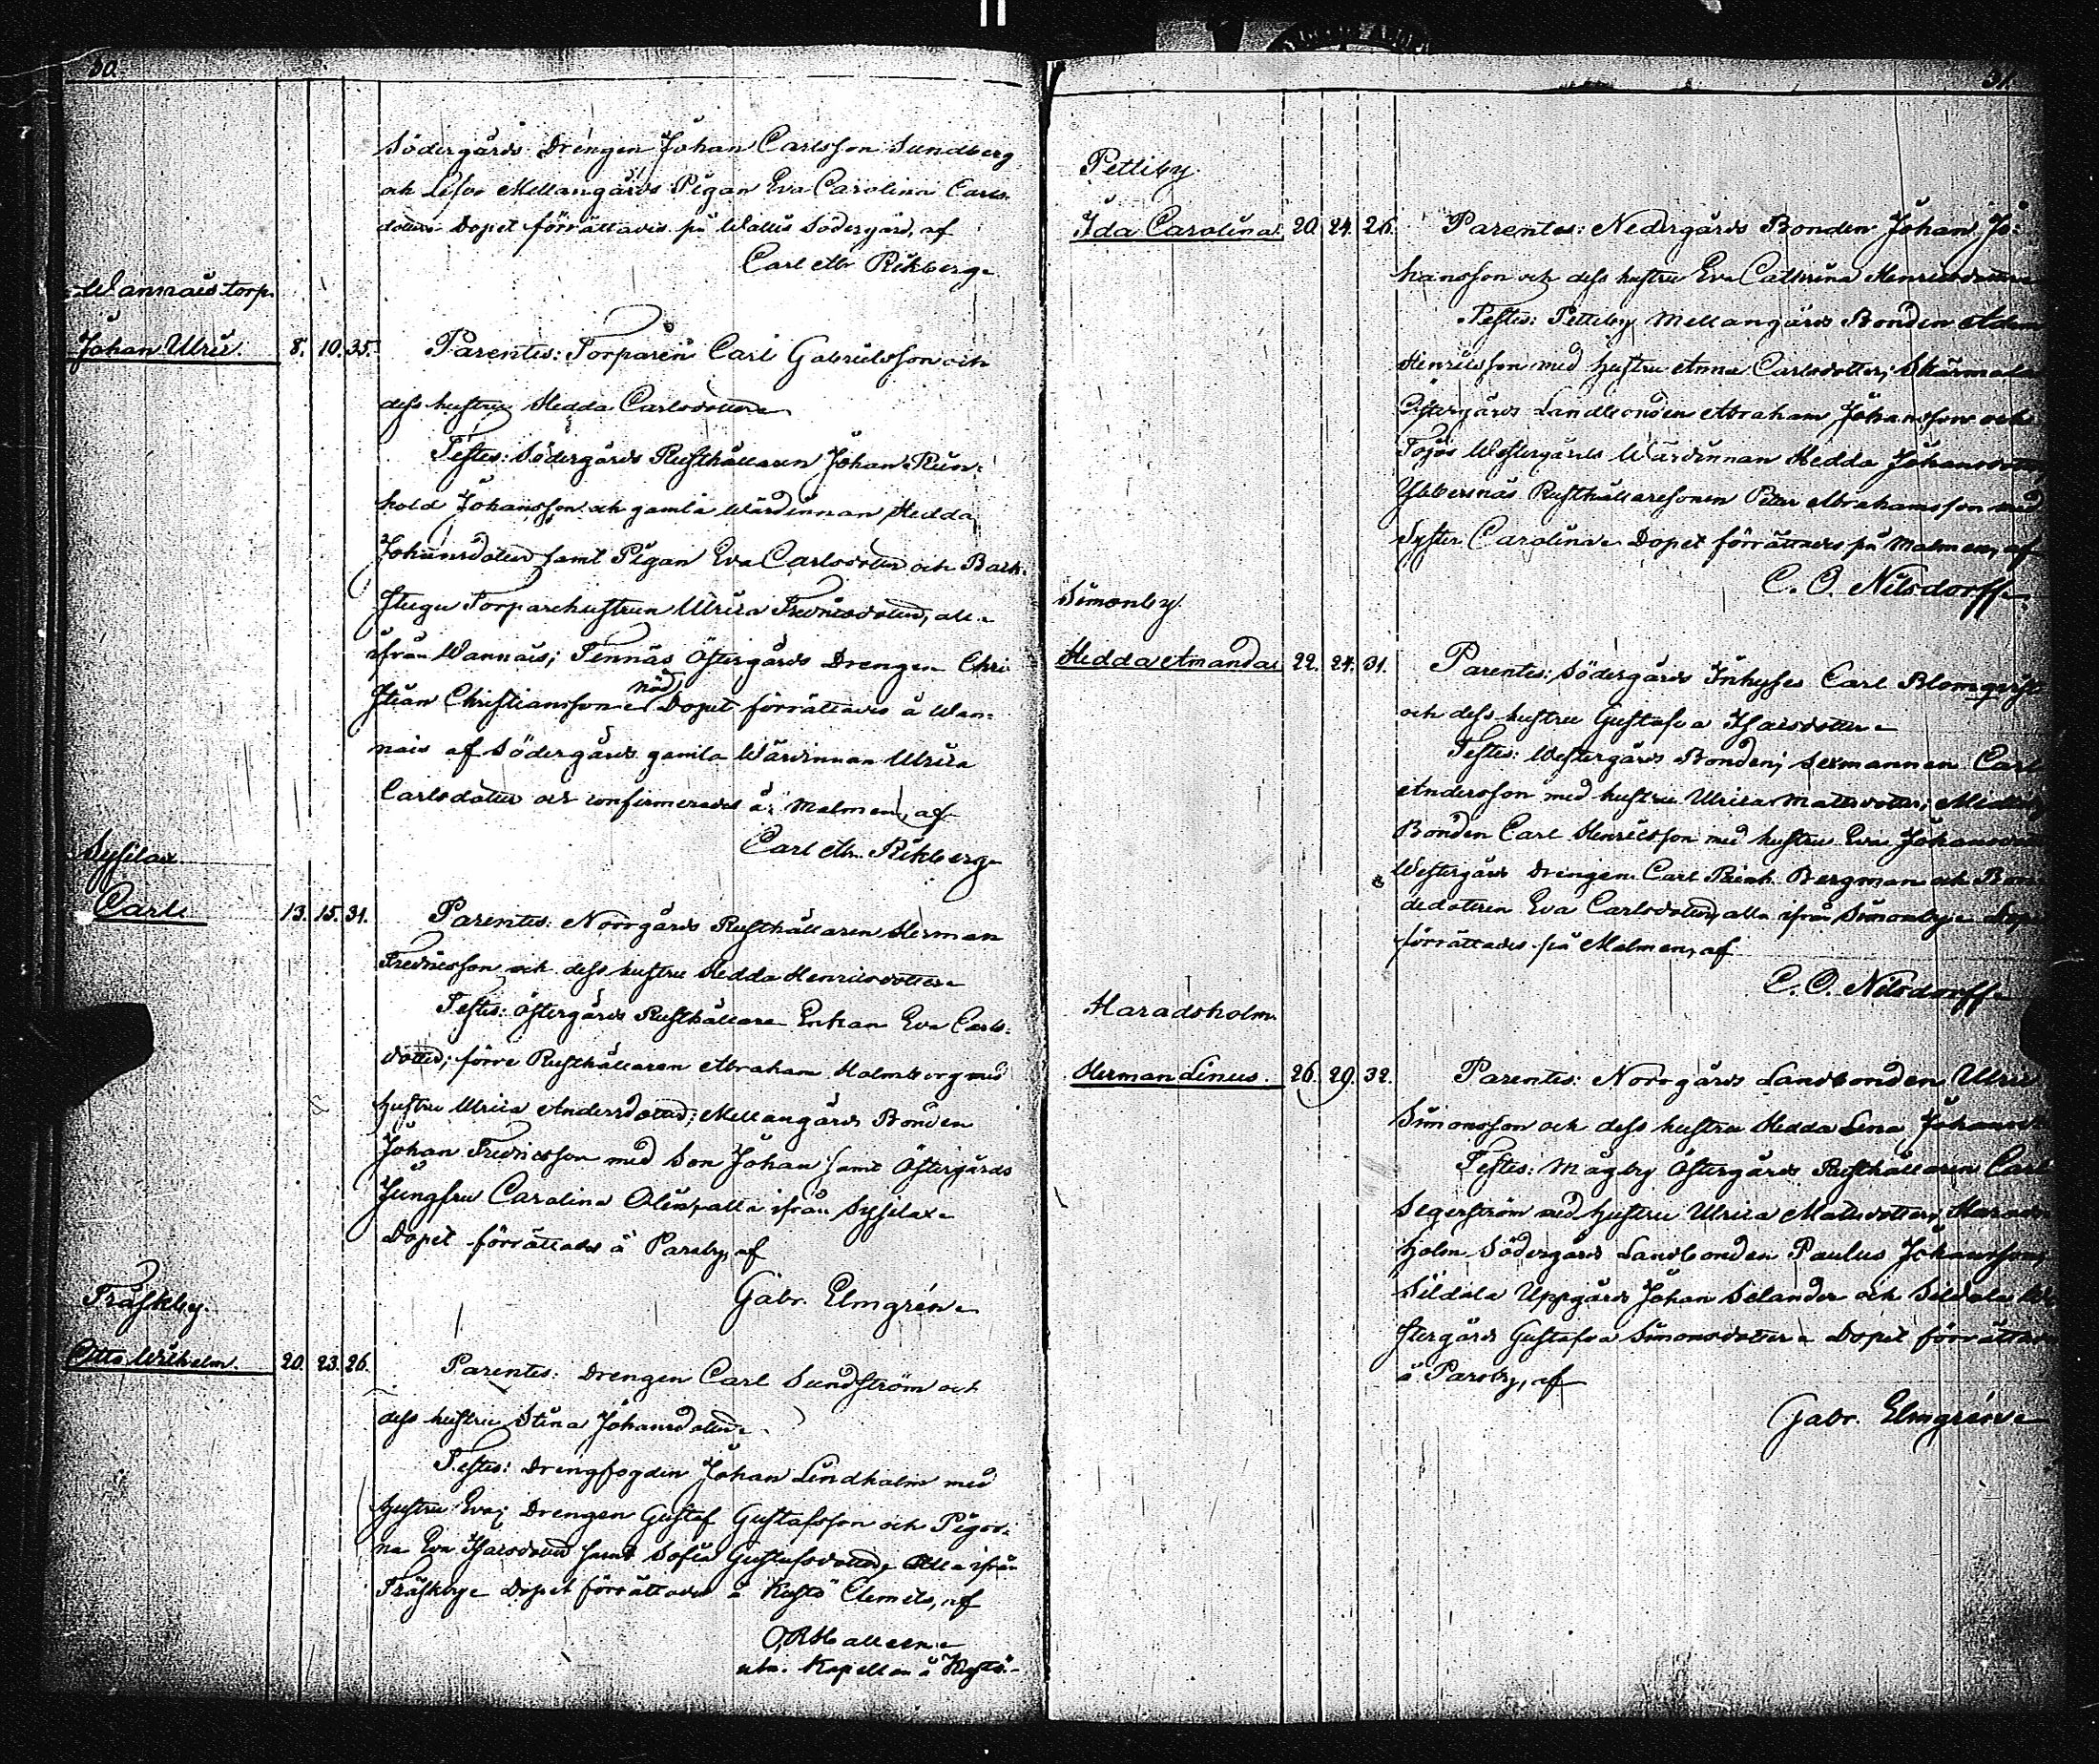 30.
Södergårds Drengen Johan Carlsson Sundberg
och Mellangårds Pigan Eva Carolina Carls-
dotter Dopet förrättades på Wallis Södergård, af
Carl Abr Rikberg
Wannais torp.
Johan Ulric. 8. 10. 35. Parentes: Torparen Carl Gabrielsson och
dess hustru Hedda Carlsdotter
Testes: Södergårds Rusthållaren Johan Rein-
hold Johansson och gamla Wärdinnan Hedda
Johansdotter samt Pigan Eva Carlsdotter och Back-
stugu Torparehustrun Ulrica Fredricsdotter, alla
ifrån Wannais; Tennäs Östergårds Drengen Chri-
stian Christiansson nöd Dopet förrättades å Wan-
nais af Södergårds gamla Wärdinnan Ulrica
Carlsdotter och confirmerades å Malmen, af
Carl Abr. Rikberg
Sysilax
Carl. 13. 15. 31. Parentes: Norrgårds Rusthållaren Herman
Fredricsson och dess hustru Hedda Henricsdotter
Testes: Östergårds Rusthållare Enkan Eva Carls-
dotter; förre Rusthållaren Abraham Holmberg med
hustru Ulrica Andersdotter; Mellangårds Bonden
Johan Fredricsson med Son Johan samt Östergårds
Jungfru Carolina Olin, alla ifrån Sysilax
Dopet förrättades å Paraby, af
Gabr. Elmgrén
Träskby.
Otto Wilhelm. 20. 23. 26. Parentes: Drengen Carl Sundström och
dess hustru Stina Johansdotter
Testes: Drengfogden Johan Lindholm med
hustru Eva; Drengen Gustaf Gustafsson och Pigor-
na Eva Isacsdotter samt Sofia Gustafsdotter, Alla ifrån
Träskby Dopet förrättades å Kustö Clemets, af
Kapellan å Kustö
31.
Pettiby.
Ida Carolina. 20. 24. 26. Parentes: Nedergårds Bonden Johan Jo-
hansson och dess hustru Eva Catharina Henricsdotter
Testes: Pettiby Mellangårds Bonden Adam
Henricsson med hustru Anna Carlsdotter; Skärmola
Östergårds Landbonden Abraham Johansson och
Tojos Westergårds Wärdinnan Hedda Johansdotter,
Ybbersnäs Rusthållaresonen Petter Abrahamsson med
Syster Carolina Dopet förrättades på Malmen, af
C. O. Nilsdorff
Simonby.
Hedda Amanda 22. 24. 31. Parentes: Södergårds Inhyses Carl Blomqvist
och dess hustru Gustafva Isacsdotter
Testes: Westergårds Bonden, Sexmannen Carl
Andersson med hustru Ulrica Mattsdotter;
Bonden Carl Henricsson med hustru Eva Johansdotter
Westergårds Drengen Carl Reinh. Bergman och Bon-
dedottren Eva Carlsdotter, alla ifrån Simonby Dopet
förrättades på Malmen, af
C. O. Nilsdorff
Haradsholm.
Herman Linus. 26. 29. 32. Parentes: Norrgårds Landbonden Ulric
Simonsson och dess hustru Hedda Lena Johansd.
Testes: Mågby Östergårds Rusthållaren Carl
Segerström med hustru Ulrica Matsdotter; Harads-
holm Södergårds Landbonden Paulus Johansson,
Sildala Uppgårds Johan Selander och Sildala We-
stergårds Gustafva Simonsdotter Dopet förrättades
å Paraby, af
Gabr. Elmgrén